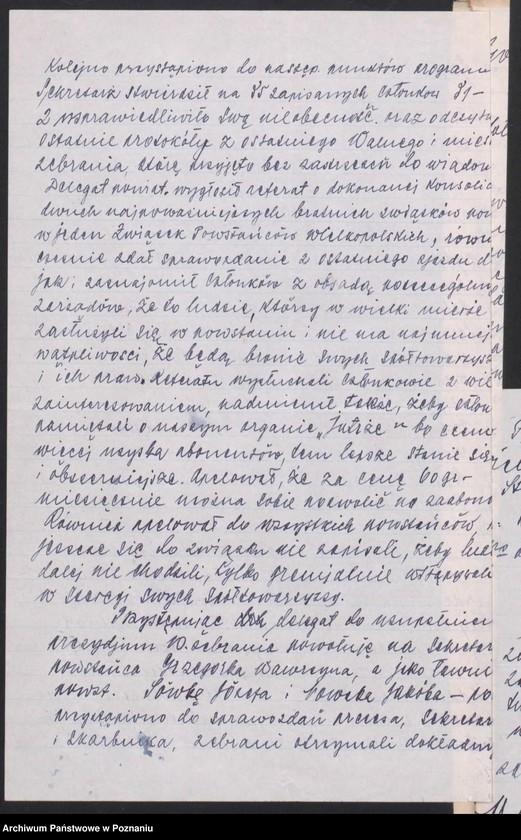 Kolejno przystąpiono do następ. punktów programu
Sekretarz stwierdził na 35 zapisanych członków 31 –
2 usprawiedliwiło swą nieobecność, oraz odczyta
ostatnie protokóły z ostatniego Walnego i mies
zebrania, które przyjęto bez zastrzeżeń do wiadom
Delegat powiat. wygłosił referat o dokonanej konsolid
dwuch najpoważniejszych bratnich związków pow
w jeden Związek Powstańców Wielkopolskich, równo
cześnie zdał sprawozdanie z ostatniego zjazdu d
jak i zaznajomił członków z obsadą poszczególny
zarządów, że to ludzie, którzy w wielki mierze
zasłużyli się w powstaniu i nie ma najmniej
wątpliwości, że będą bronić swych spółtowarzysz
i ich praw. Referatu wysłuchali członkowie z wiel
zainteresowaniem, nadmienił także, żeby człon
pamiętali o naszym organie „Jutże" bo
więcej uzyska abonentów, tem lepsze stanie się
i obszerniejsze. Apelował, że za cenę 60 gr –
miesięcznie można sobie pozwolić na zaabono
Również apelował do wszystkich powstańców
jeszcze się do związku nie zapisali, żeby
dalej nie chodzili, tylko gremjalnie wstępywali
w szeregi swych spółtowarzyszy.
Przystępując delegat do uzupełnien
prezydjum W. zebrania powołuję na sekretar
powstańca Grzegorka Wawrzyna, a jako ławni
powst. Sówkę Józefa i Nowaka Jakóba – po
przystąpiono do sprawozdań prezesa, sekretar
i skarbnika, zebrani otrzymali dokładny
Archiwum Państwowe w Poznaniu